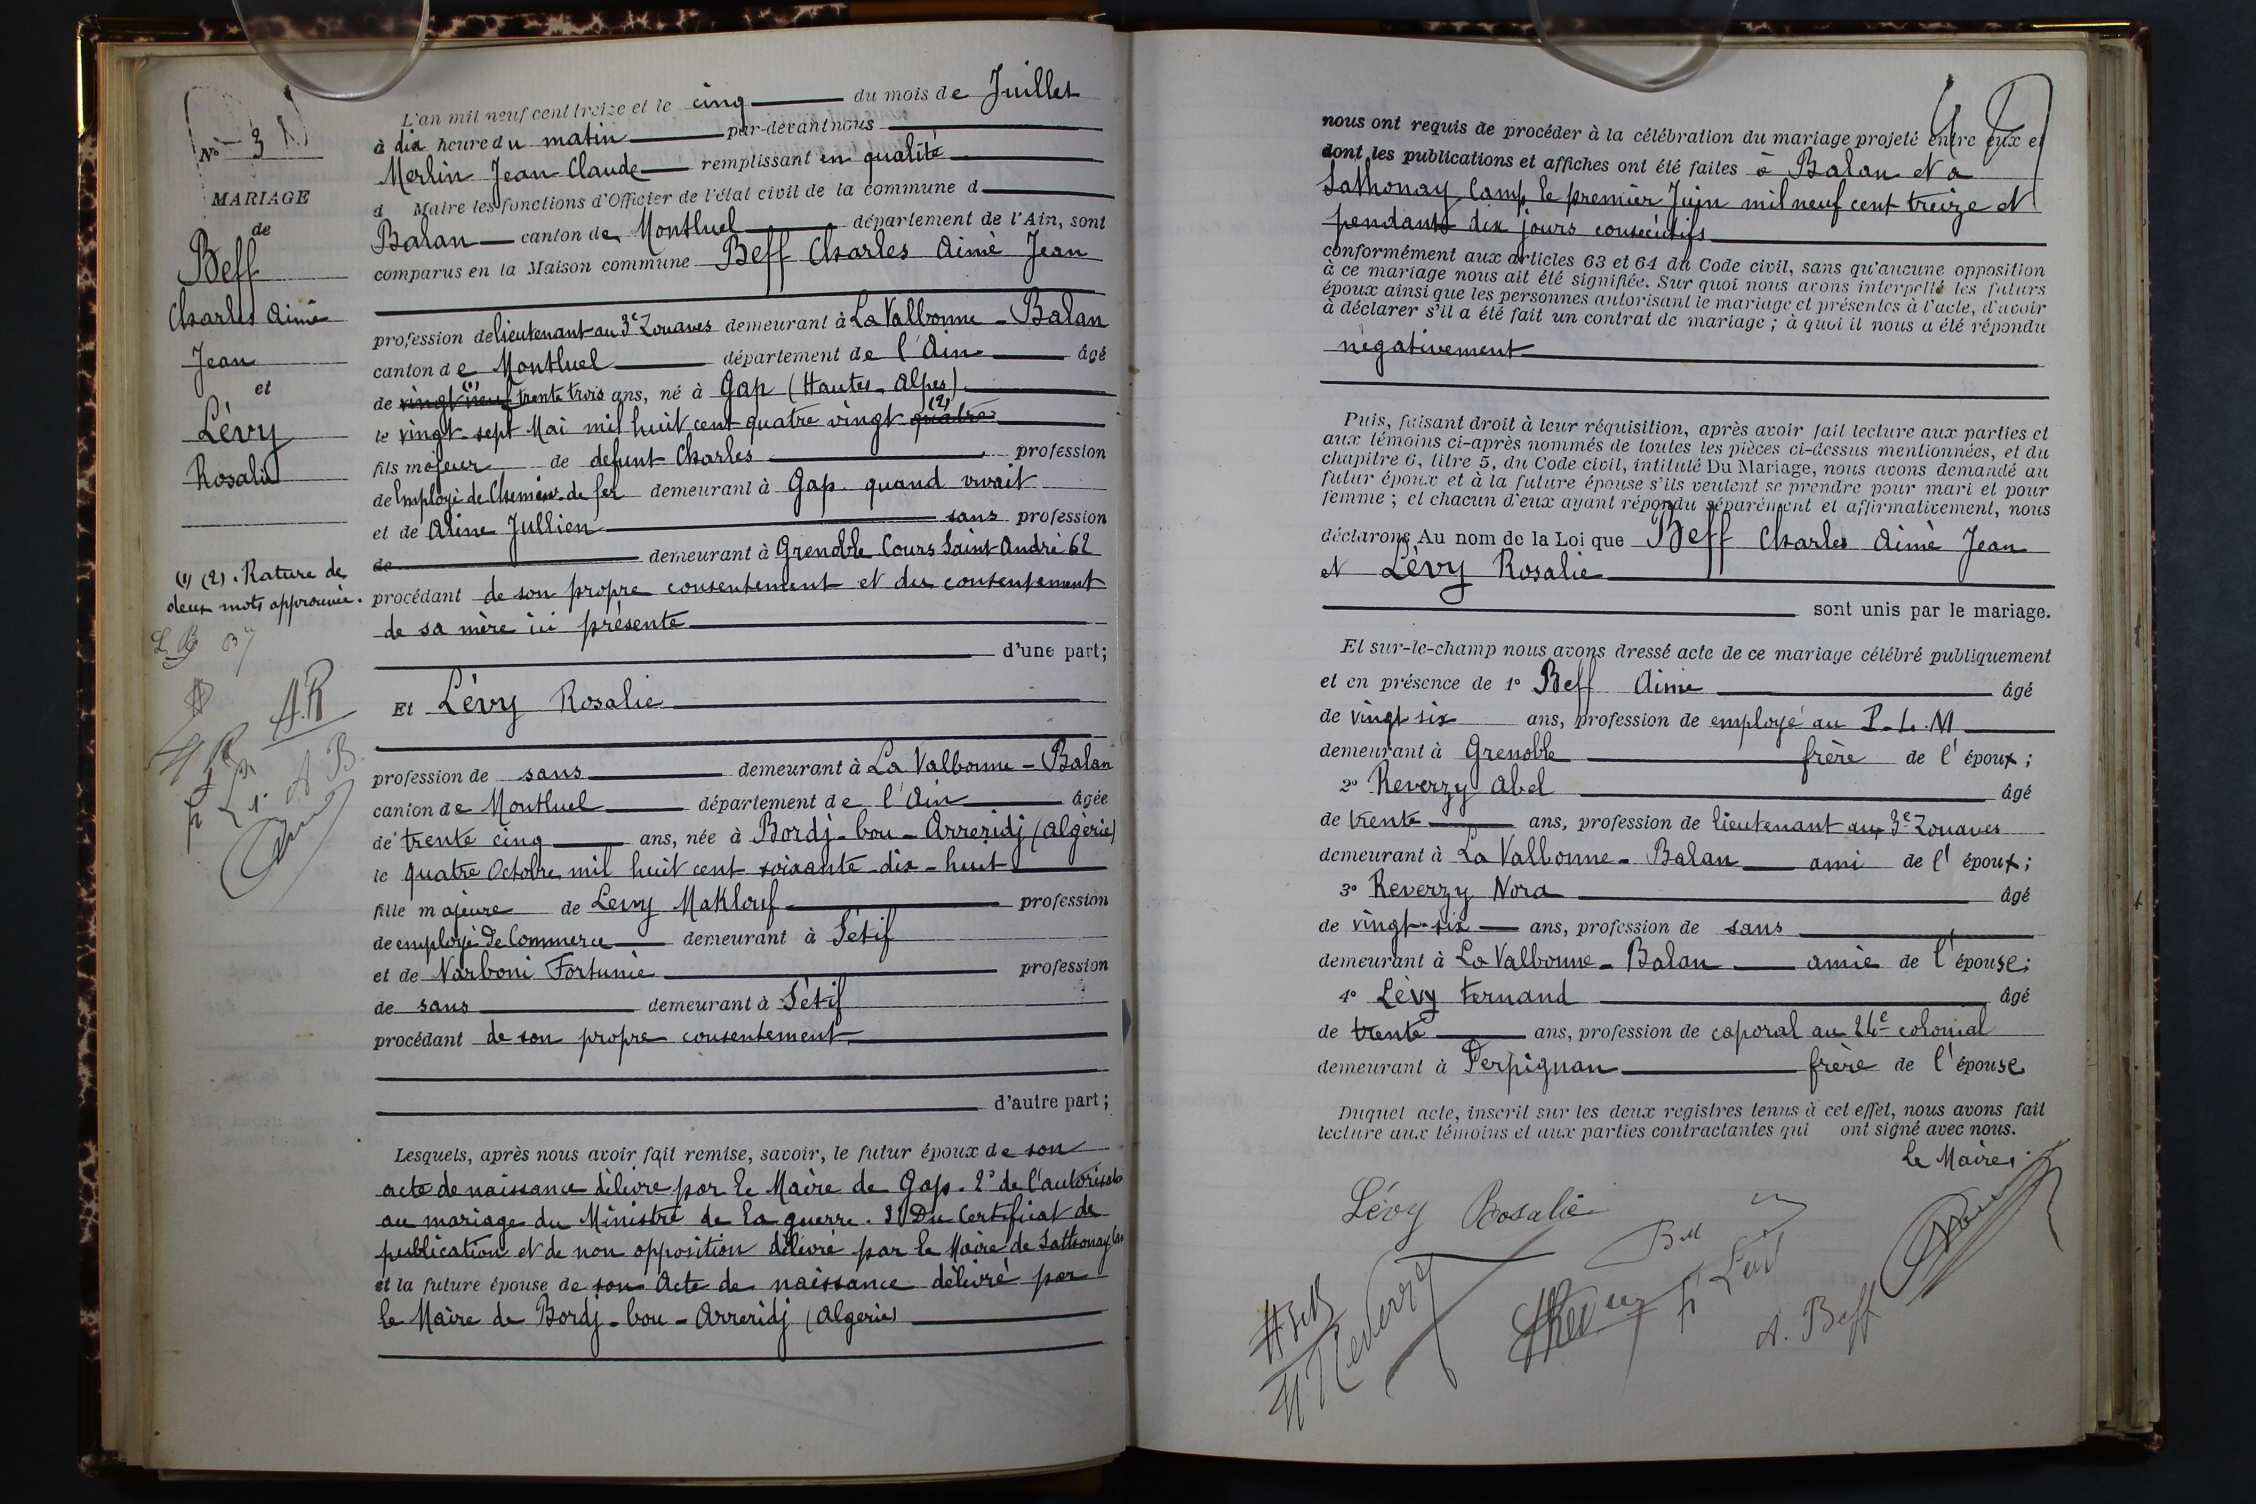 N° 3
MARIAGE
de
Beff
Charles Aimé
Jean
et
Lévy
Rosalie
(1) (2). Rature de
deux mots approuvée.
A.R
A B.
L'an mil neuf cent treize et le cinq du mois de Juillet
à dix heure du matin par-devant nous
Merlin Jean Claude remplissant en qualité
d Maire les fonctions d'Officier de l'état civil de la commune d
Balan canton de Montluel département de l'Ain, sont
comparus en la Maison commune Beff Charles Aimé Jean
profession de lieutenant au 3e Zouaves demeurant à La Valbonne - Balan
canton de Montluel département de l'Ain âgé
de vingt neuf (1) trente trois ans, né à Gap (Hautes-Alpes)
le vingt-sept Mai mil huit cent quatre vingt quatre (2)
fils majeur de defunt Charles profession
de Employé de Chemins de fer demeurant à Gap quand vivait
et de Aline Jullien sans profession
de demeurant à Grenoble Cours Saint André 62
procédant de son propre consentement et du consentement
de sa mère ici présente
d'une part;
Et Lévy Rosalie
profession de sans demeurant à La Valbonne - Balan
canton de Montluel département de l'Ain âgée
de trente cinq ans, née à Bordj-bou-Arreridj (Algérie)
le quatre Octobre mil huit cent soixante-dix-huit
fille majeure de Levy Maklouf profession
de employé de Commerce demeurant à Sétif
et de Narboni Fortunie profession
de sans demeurant à Sétif
procédant de son propre consentement
d'autre part;
Lesquels, après nous avoir fait remise, savoir, le futur époux de son
acte de naissance délivré par le Maire de Gap. 2° de l'autorisat°
au mariage du Ministre de la guerre. 3° Du Certificat de
publication et de non opposition délivré par le Maire de Sathonay
et la future épouse de son Acte de naissance délivré par
le Maire de Bordj-bou-Arreridj (Algerie)
nous ont requis de procéder à la célébration du mariage projeté entre eux et
dont les publications et affiches ont été faites à Balan et a
Sathonay Camp, le premier Juin mil neuf cent treize et
pendants dix jours consécutifs
conformément aux articles 63 et 64 du Code civil, sans qu'aucune opposition
à ce mariage nous ait été signifiée. Sur quoi nous avons interpellé les futurs
époux ainsi que les personnes autorisant le mariage et présentes à l'acte, d'avoir
à déclarer s'il a été fait un contrat de mariage; à quoi il nous a été répondu
négativement
Puis, faisant droit à leur réquisition, après avoir fait lecture aux parties et
aux témoins ci-après nommés de toutes les pièces ci-dessus mentionnées, et du
chapitre 6, titre 5, du Code civil, intitulé Du Mariage, nous avons demandé au
futur époux et à la future épouse s'ils veulent se prendre pour mari et pour
femme; et chacun d'eux ayant répondu séparément et affirmativement, nous
déclarons Au nom de la Loi que Beff Charles Aimé Jean
et Lévy Rosalie
sont unis par le mariage.
Et sur-le-champ nous avons dressé acte de ce mariage célébré publiquement
et en présence de 1° Beff Aimé âgé
de vingt six ans, profession de employé au P.L.M
demeurant à Grenoble frère de l'époux;
2° Reverzy Abel âgé
de trente ans, profession de lieutenant au 3e Zouaves
demeurant à La Valbonne - Balan ami de l'époux;
3° Reverzy Nora âgé
de vingt-six ans, profession de sans
demeurant à La Valbonne - Balan amie de l'épouse;
4° Lévy Fernand âgé
de trente ans, profession de caporal au 24e colonial
demeurant à Perpignan frère de l'épouse
Duquel acte, inscrit sur les deux registres tenus à cet effet, nous avons fait
lecture aux témoins et aux parties contractantes qui ont signé avec nous.
Le Maire,
Lévy Rosalie
Reverzy
A. Beff